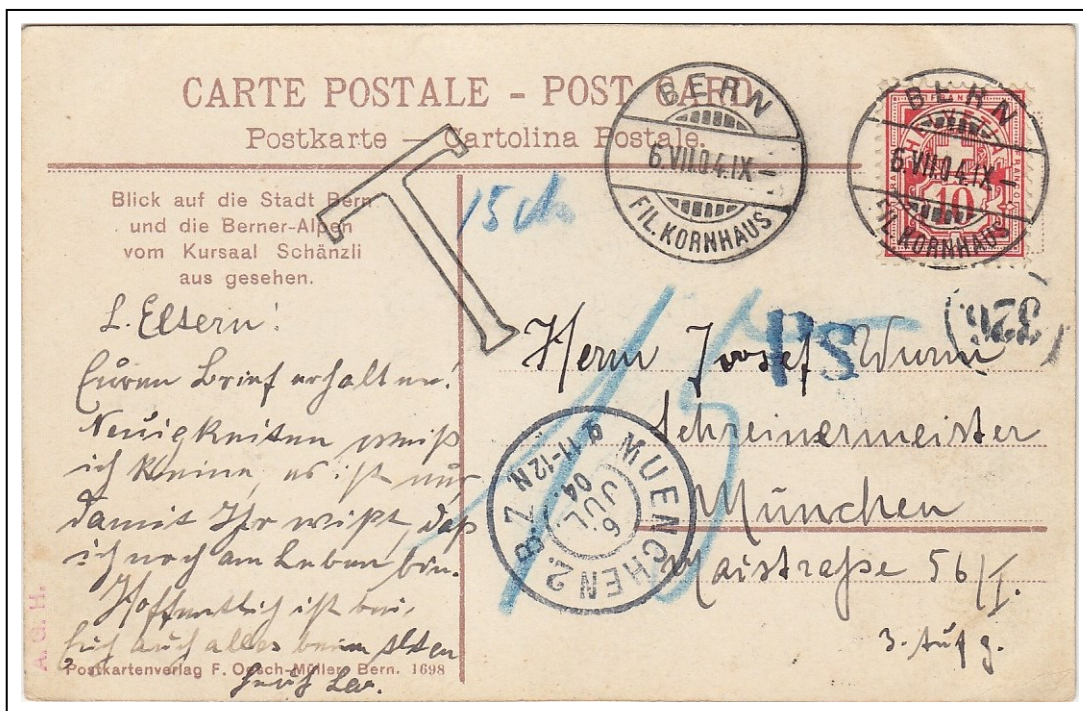 CARTE POSTALE - POST CARD.
Postkarte — Cartolina Postale.
BERN
6.VII.04.IX-
FIL. KORNHAUS
BERN
6.VII.04.IX-
FIL. KORNHAUS
FRANCO
10
Blick auf die Stadt Bern
und die Berner-Alpen
vom Kursaal Schänzli
aus gesehen.
T
15
15
L. Eltern!
Euren Brief erhalten!
Neuigkeiten weiß
ich keine, es ist nur
damit Ihr wißt, daß
ich noch am Leben bin.
Hoffentlich ist bei
Euch auch alles beim Alten
Herrn Josef Wurm
PS
326
Schreinermeister
München
Maistraße 56/I.
3. Aufg.
MUENCHEN 2. B.Z.
6
JUL.
04.
11-12 N.
A. G. H.
Postkartenverlag F. Oesch-Müller, Bern. 1698